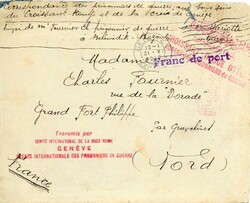 Correspondance des prisonniers de guerre aux bons soins
du Croissant Rouge et de la Croix Rouge
de Mr Fournier prisonnier de guerre
à
Franc de port
Madame
Charles Fournier
rue de la "Dorade"
Grand Fort Philippe
Par Gravelines
(Nord)
Transmis par
COMITÉ INTERNATIONAL DE LA CROIX ROUGE
GENÈVE
AGENCE INTERNATIONALE DES PRISONNIERS DE GUERRE
France